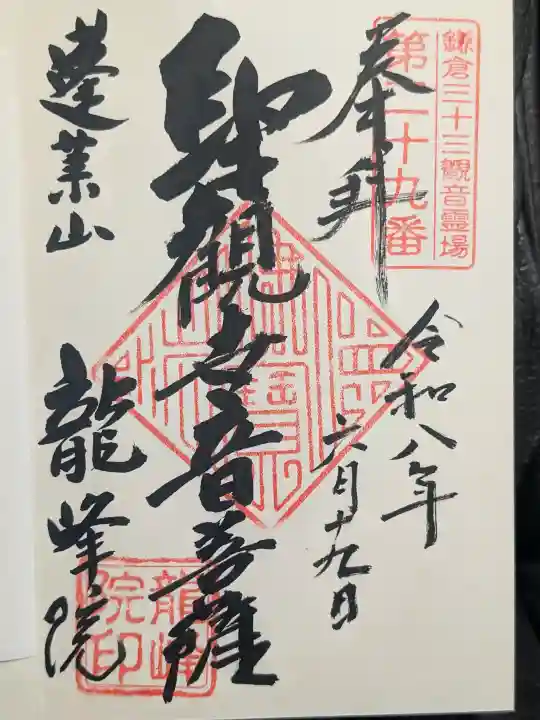 鎌倉三十三觀音霊場
第二十九番
奉拜
令和八年
六月十九日
聖觀世音菩薩
蓬莱山
龍峰院
龍峰
院印